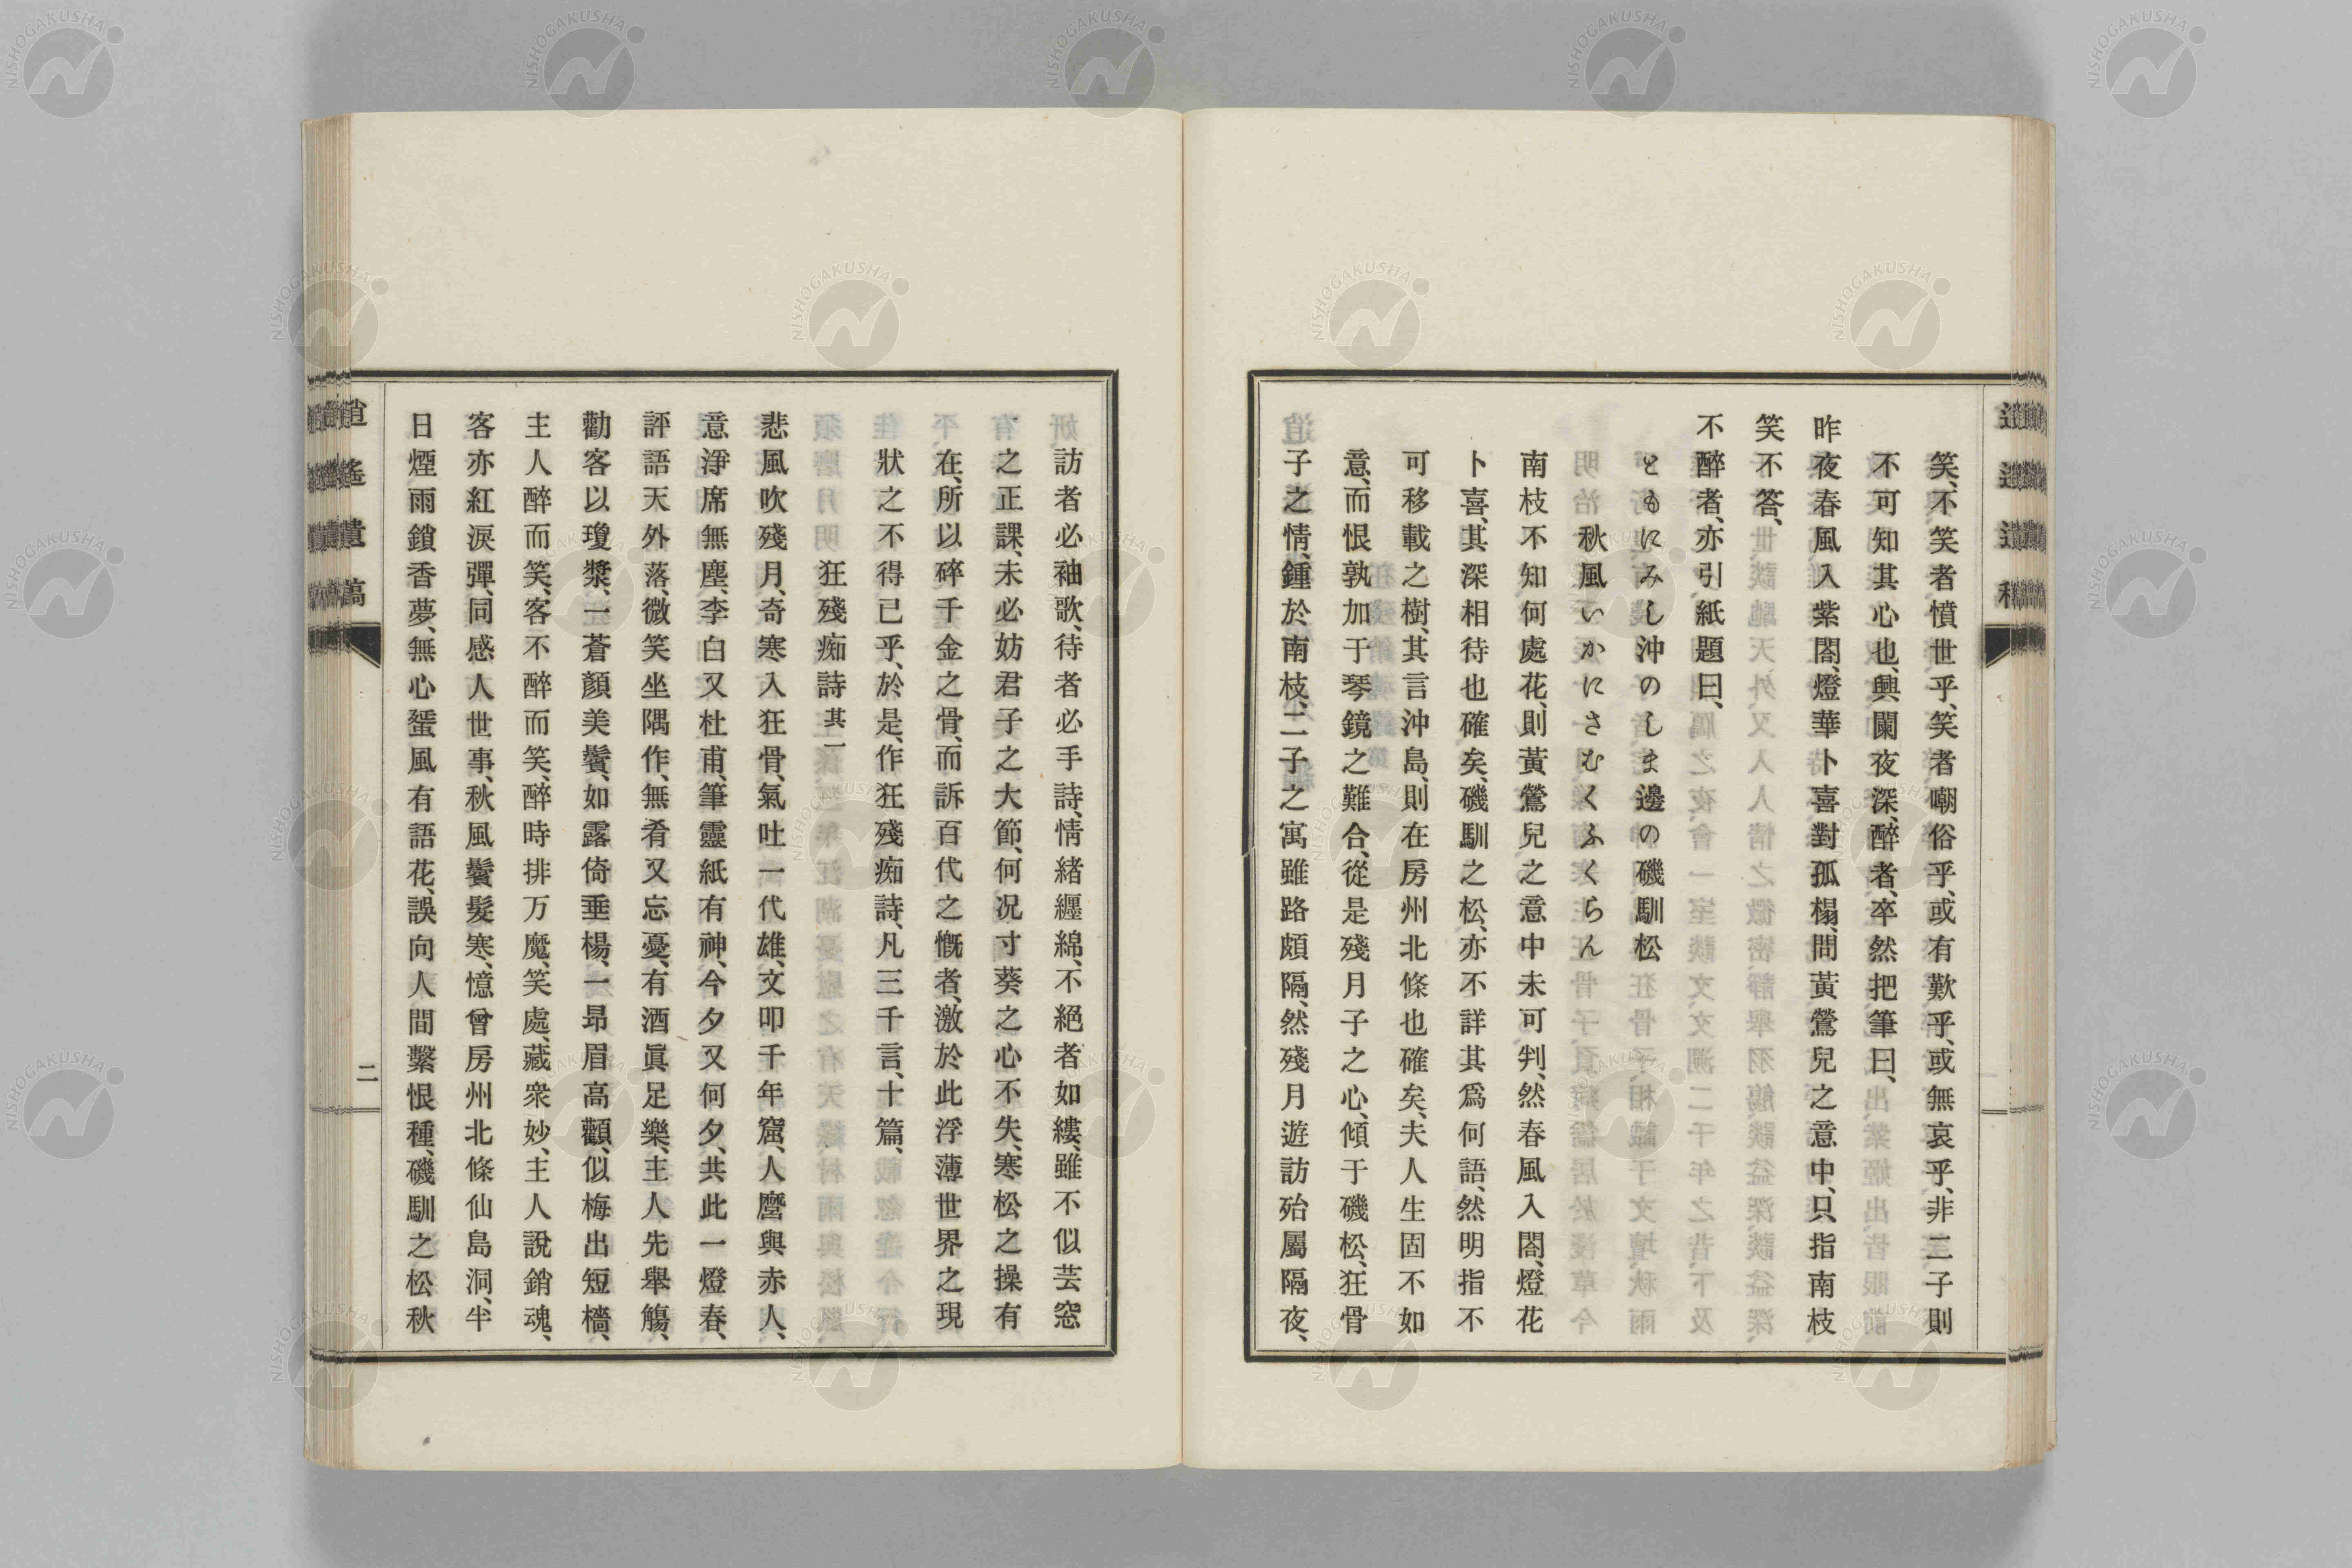 笑、不笑者憤世乎、笑者嘲俗乎、或有歎乎、或無哀乎、非二子則
不可知其心也、興闌夜深、醉者、卒然把筆曰、
昨夜春風入紫閤、燈華卜喜對孤榻、問黃鶯兒之意中、只指南枝
笑不答、
不醉者、亦引紙題曰、
ともにみし沖のしま邊の磯馴松
秋風いかにさむくふくらん
南枝不知何處花、則黃鶯兒之意中未可判、然春風入閤、燈花
卜喜、其深相待也確矣、磯馴之松、亦不詳其爲何語、然明指不
可移載之樹、其言沖島、則在房州北條也確矣、夫人生固不如
意、而恨孰加于琴鏡之難合、從是殘月子之心、傾于磯松、狂骨
子之情、鍾於南枝、二子之寓雖路頗隔、然殘月遊訪殆屬隔夜、
訪者必袖歌、待者必手詩、情緒纒綿、不絕者如縷、雖不似芸窓
之正課、未必妨君子之大節、何況寸葵之心不失、寒松之操有
在、所以碎千金之骨、而訴百代之慨者、激於此浮薄世界之現
狀之不得已乎、於是、作狂殘痴詩、凡三千言、十篇、
狂殘痴詩 其一
悲風吹殘月、奇寒入狂骨、氣吐一代雄、文叩千年窟、人麿與赤人、
意淨席無塵、李白又杜甫、筆靈紙有神、今夕又何夕、共此一燈春、
評語天外落、微笑坐隅作、無肴又忘憂、有酒眞足樂、主人先舉觴、
勸客以瓊漿、一蒼顏美鬢、如露倚垂楊、一昂眉高顴、似梅出短檣、
主人醉而笑、客不醉而笑、醉時排万魔、笑處、藏衆妙、主人說銷魂、
客亦紅淚彈、同感人世事、秋風鬢髮寒、憶曾房州北條仙島洞、半
日煙雨鎖香夢、無心蜑風有語花、誤向人間繫恨種、磯馴之松秋
逍遙遺稿
二
NISHOGAKUSHA